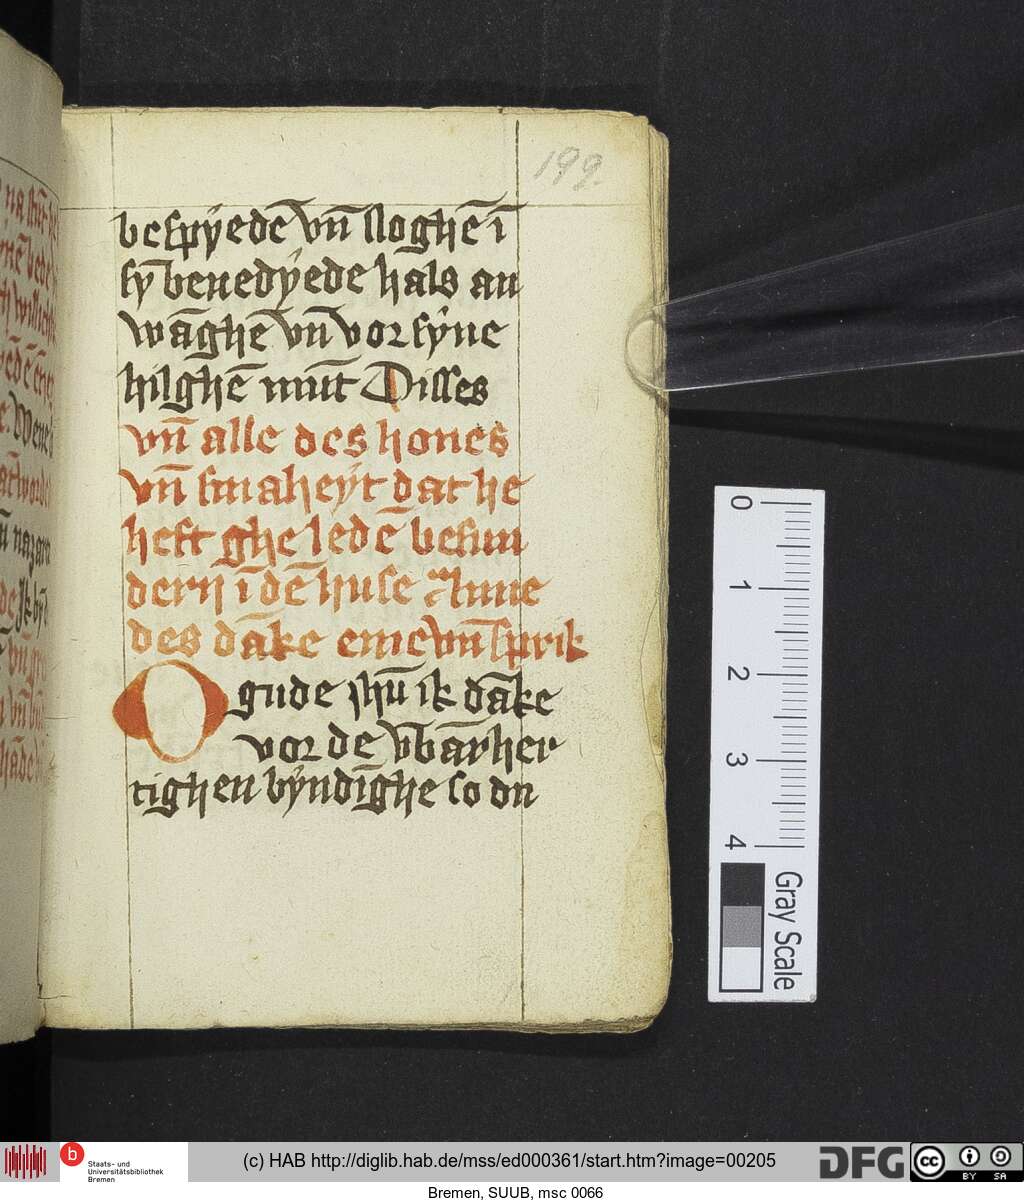 199.
bespÿedē vn̄ sloghē ī
sȳ benedÿede hals an
wāghe vn̄ vor sÿne
hilghē mūt Disses
vn̄ alle des hones
vn̄ smaheÿt dat he
heft ghe ledē besun
derń ī dē huse Anne
des dāke eme vn̄ sprik
O gude ihū ik dāke
vor de vbārher
tighen bÿndīghe so du
0
1
2
3
4
Gray Scale
b
Staats- und
Universitätsbibliothek
Bremen
(c) HAB http://diglib.hab.de/mss/ed000361/start.htm?image=00205
DFG
cc
BY SA
Bremen, SUUB, msc 0066